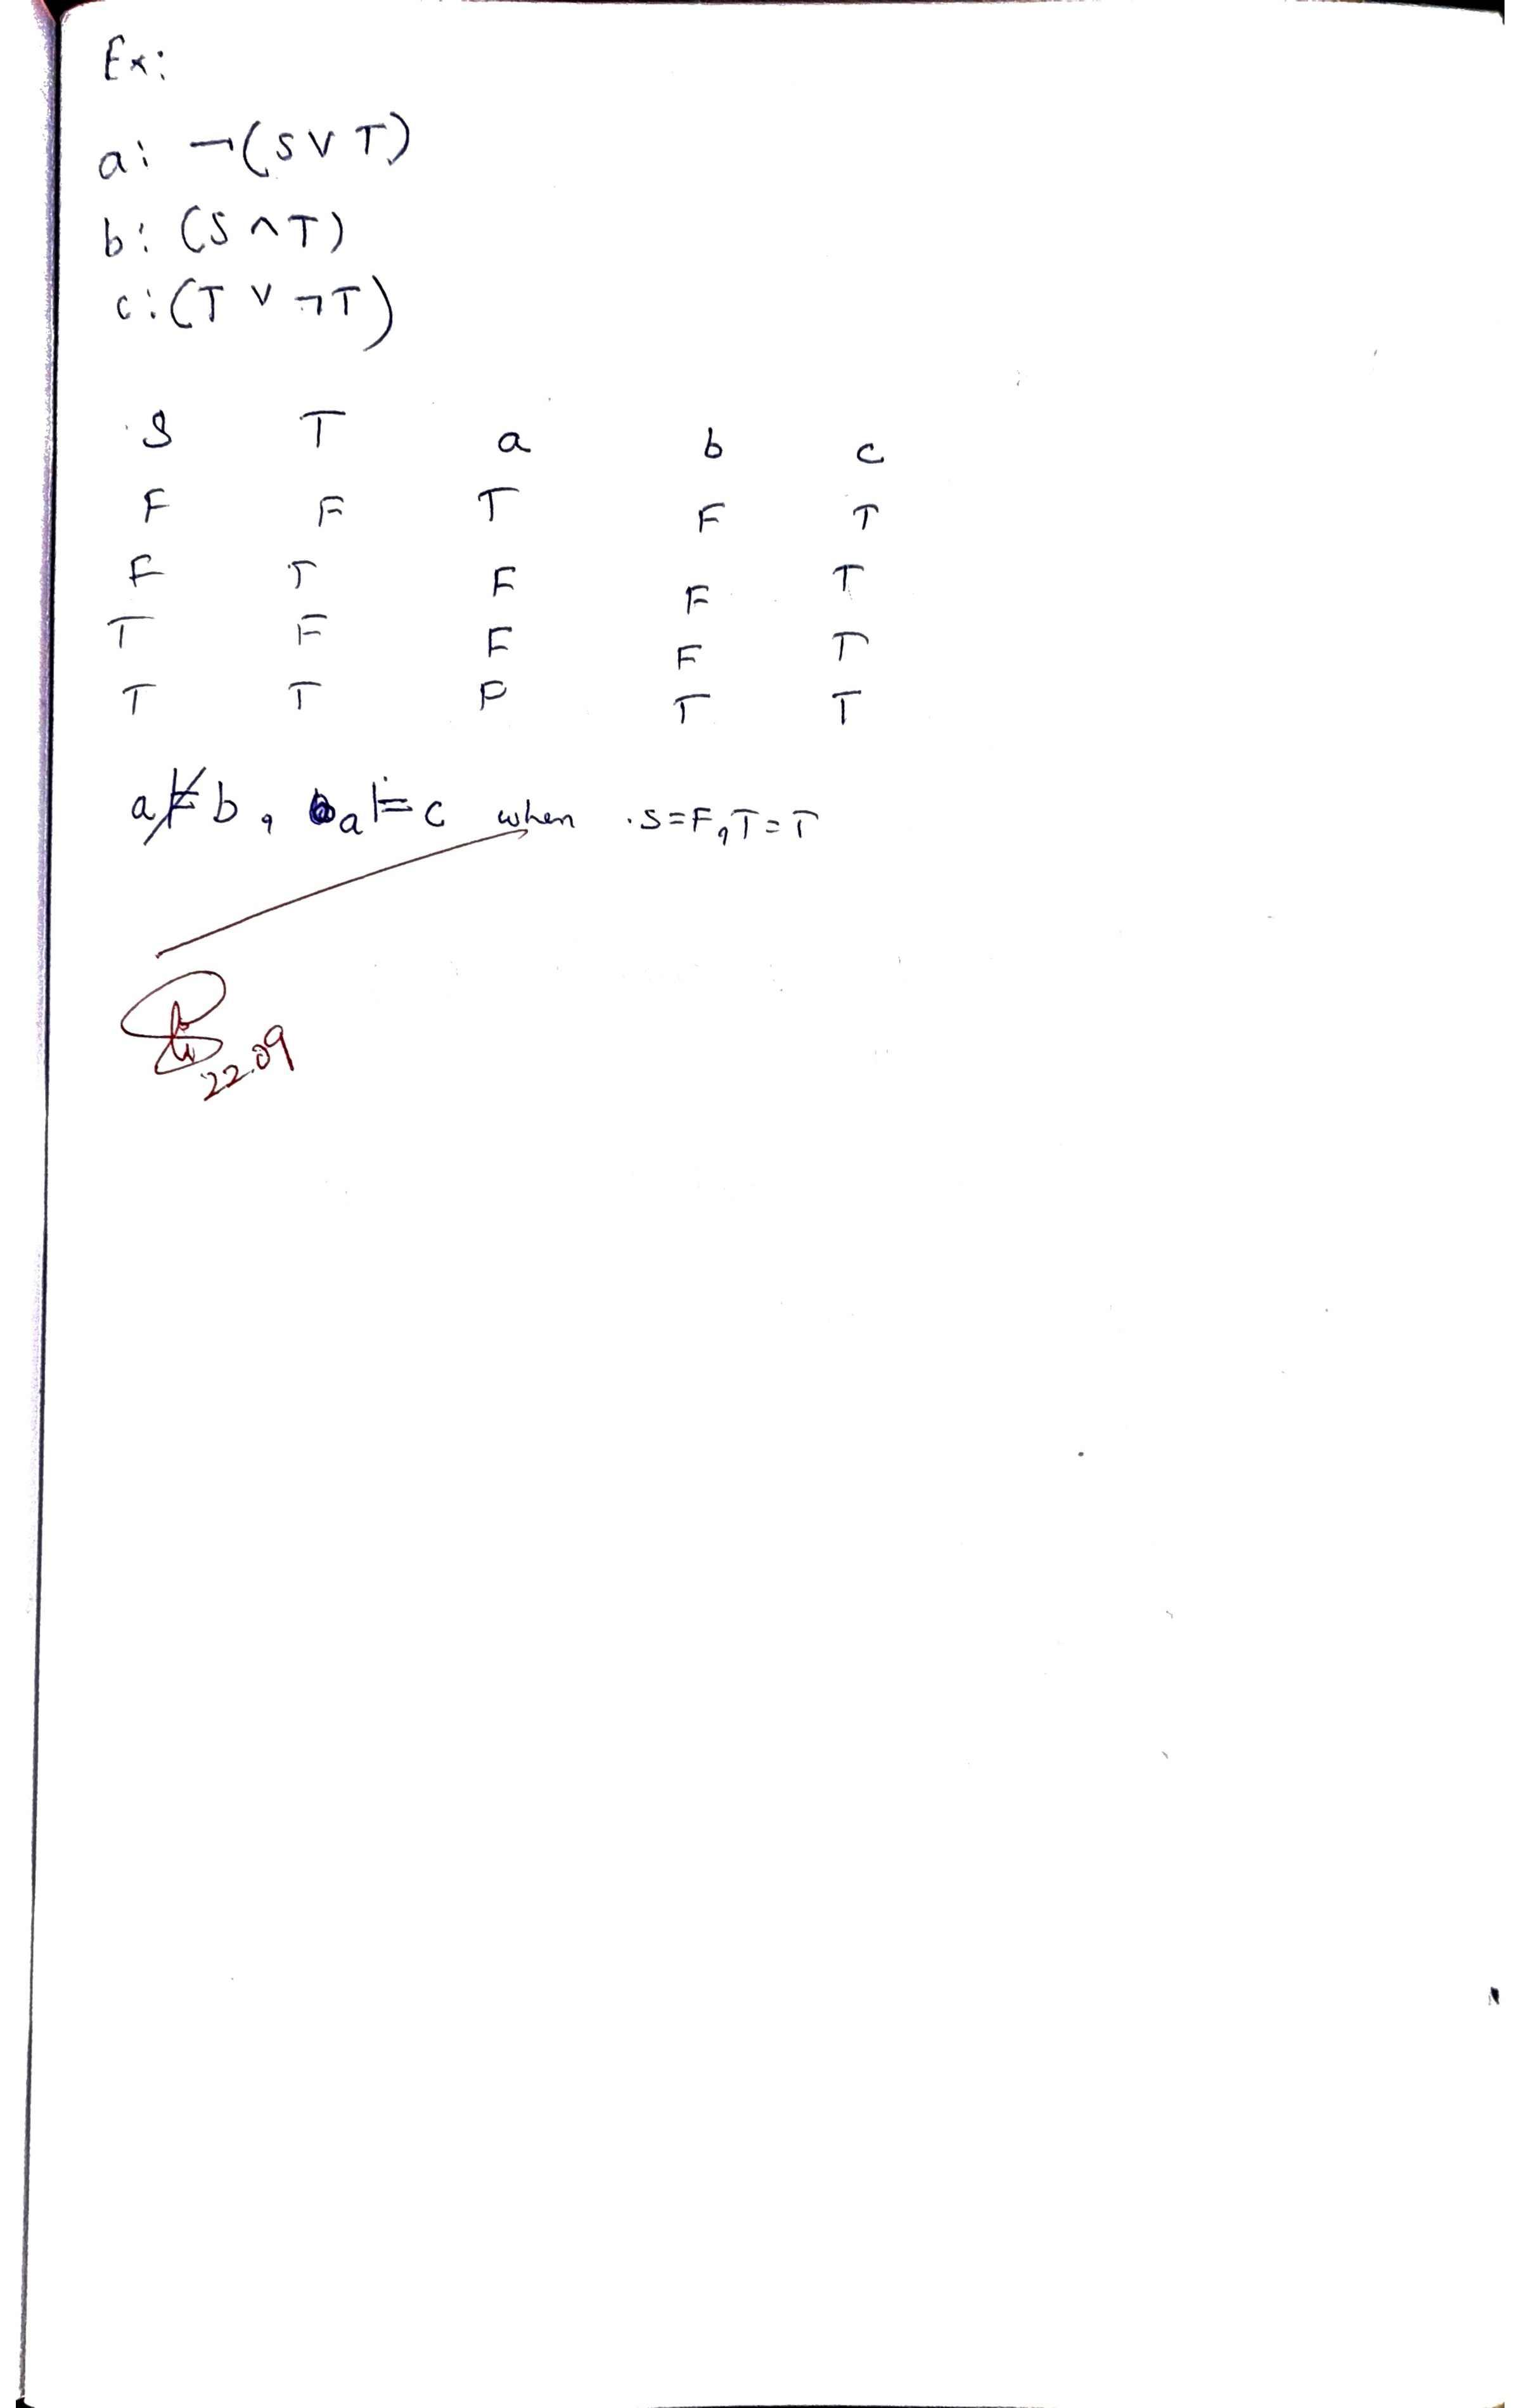 Ex:
a: ¬(S ∨ T)
b: (S ∧ T)
c: (T ∨ ¬T)
S T a b c
F F T F T
F T F F T
T F F F T
T T F T T
a ⊭ b, a ⊨ c when S=F, T=T
22.09